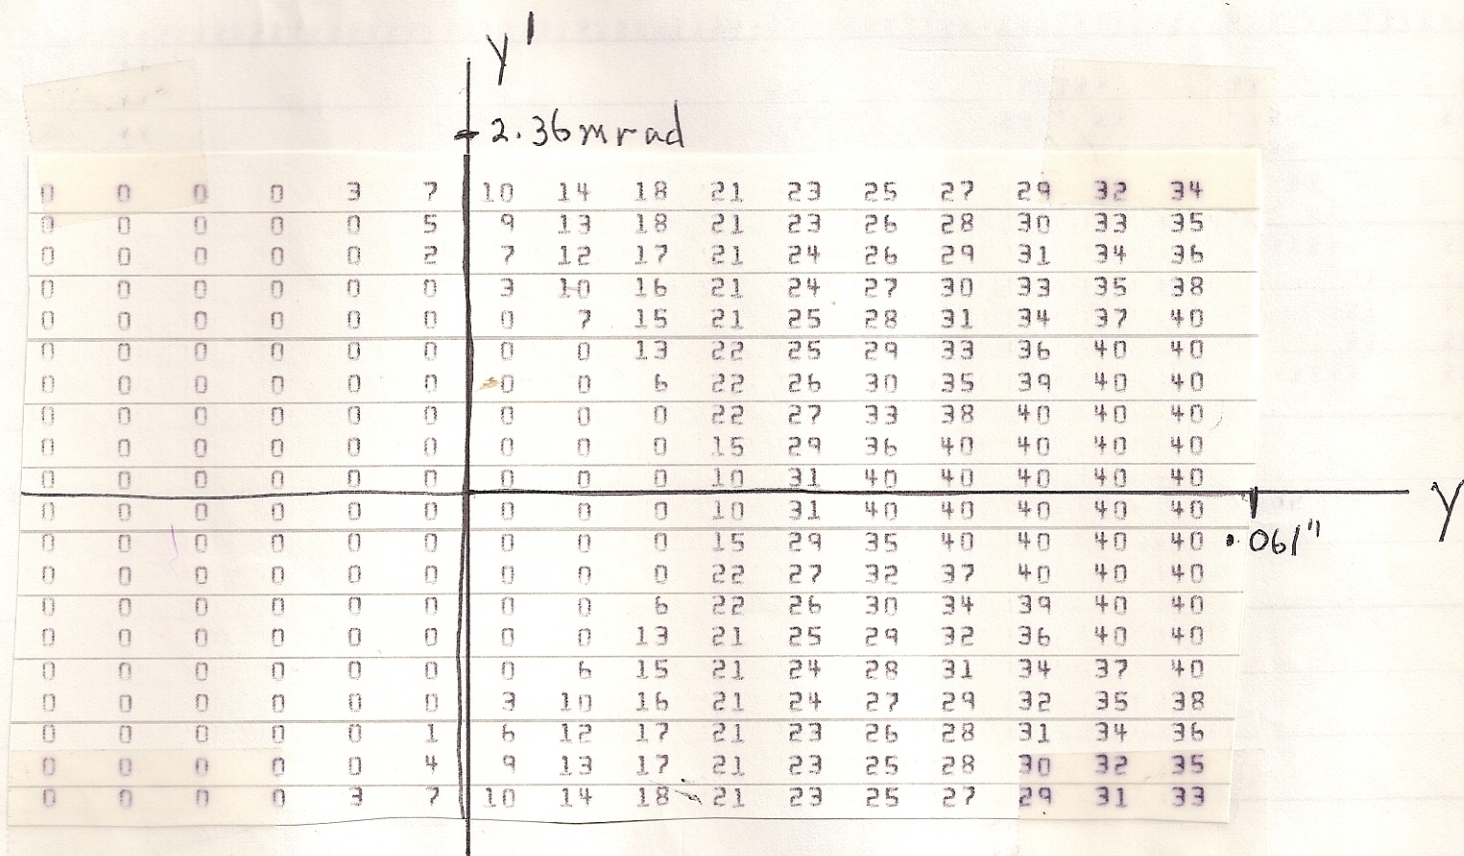 y'
2.36mrad
0 0 0 0 3 7 10 14 18 21 23 25 27 29 32 34
0 0 0 0 0 5 9 13 18 21 23 26 28 30 33 35
0 0 0 0 0 2 7 12 17 21 24 26 29 31 34 36
0 0 0 0 0 0 3 10 16 21 24 27 30 33 35 38
0 0 0 0 0 0 0 7 15 21 25 28 31 34 37 40
0 0 0 0 0 0 0 0 13 22 25 29 33 36 40 40
0 0 0 0 0 0 0 0 6 22 26 30 35 39 40 40
0 0 0 0 0 0 0 0 0 22 27 33 38 40 40 40
0 0 0 0 0 0 0 0 0 15 29 36 40 40 40 40
0 0 0 0 0 0 0 0 0 10 31 40 40 40 40 40
y
0 0 0 0 0 0 0 0 0 10 31 40 40 40 40 40
0 0 0 0 0 0 0 0 0 15 29 35 40 40 40 40 .061"
0 0 0 0 0 0 0 0 0 22 27 32 37 40 40 40
0 0 0 0 0 0 0 0 6 22 26 30 34 39 40 40
0 0 0 0 0 0 0 0 13 21 25 29 32 36 40 40
0 0 0 0 0 0 0 6 15 21 24 28 31 34 37 40
0 0 0 0 0 0 3 10 16 21 24 27 29 32 35 38
0 0 0 0 0 1 6 12 17 21 23 26 28 31 34 36
0 0 0 0 0 4 9 13 17 21 23 25 28 30 32 35
0 0 0 0 3 7 10 14 18 21 23 25 27 29 31 33